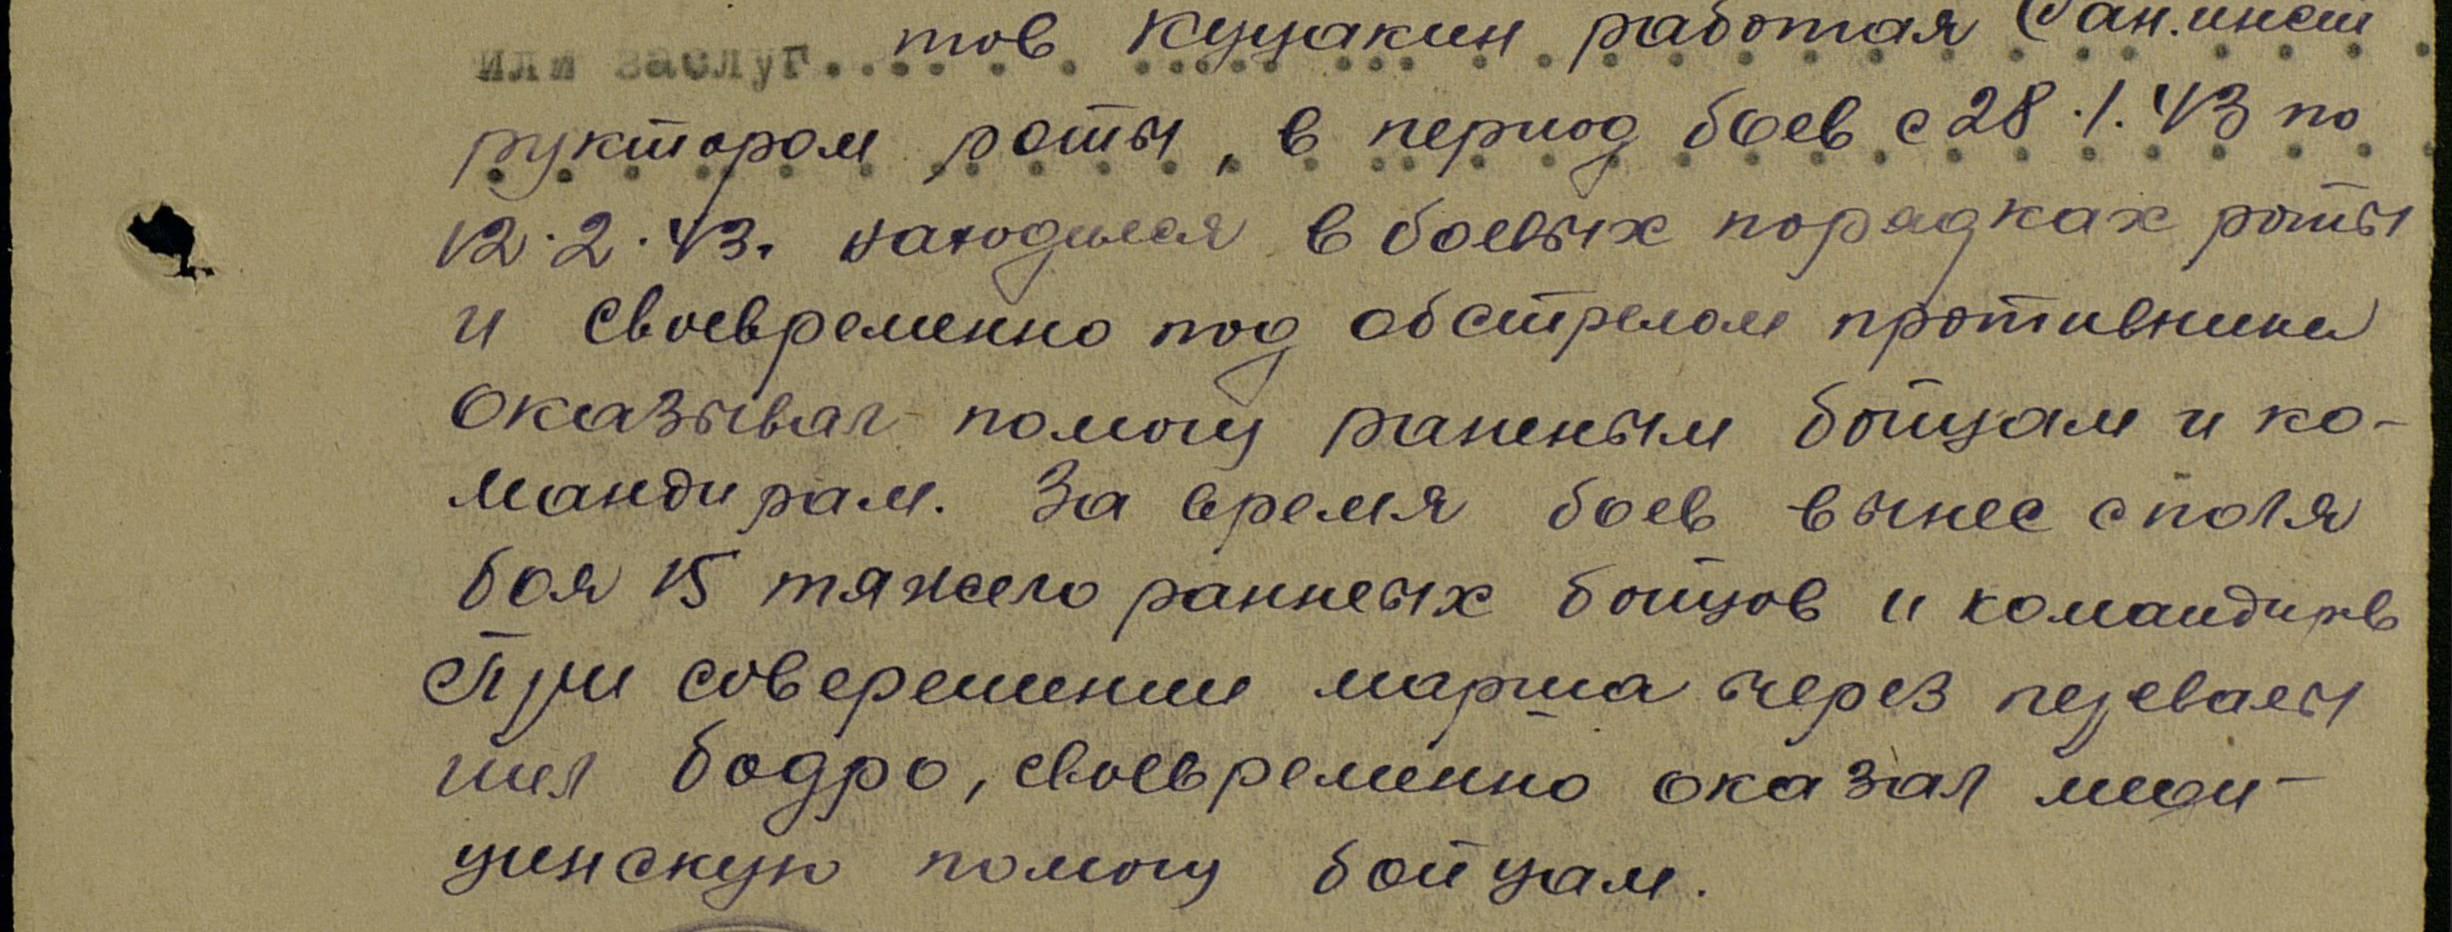 или заслуг.... тов Куцакин работая Сан.инст
руктором роты, в период боев с 28.1.43 по
12.2.43. находился в боевых порядках роты
и своевременно под обстрелом противника
оказывал помощь раненым бойцам и ко-
мандирам. За время боев вынес с поля
боя 15 тяжело раненых бойцов и командиров
При совершении марша через перевалы
шел бодро, своевременно оказал меди-
цинскую помощь бойцам.